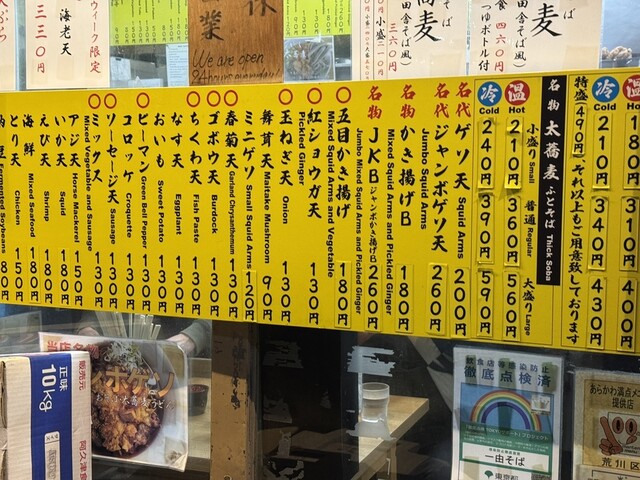 ウィーク限定
海老天
３３０円
業
We are open
24hours everyday!
小盛
２１０円
３６０円
田舎そば風
つゆボトル付
冷 Cold 温 Hot
２１０円 １８０円
３４０円 ３１０円
４３０円 ４００円
特盛（490円）それ以上もご用意致しております
名物 太蕎麦 ふとそば Thick Soba
冷 Cold 温 Hot
小盛り Small ２４０円 ２１０円
普通 Regular ３９０円 ３６０円
大盛り Large ５９０円 ５６０円
名代 ゲソ天 Squid Arms ２００円
名代 ジャンボゲソ天 Jumbo Squid Arms ２６０円
名物 かき揚げB Mixed Squid Arms and Pickled Ginger １８０円
名物 JKB ジャンボかき揚げB Jumbo Mixed Squid Arms and Pickled Ginger ２６０円
五目かき揚げ Mixed Squid Arms and Vegetable １８０円
紅ショウガ天 Pickled Ginger １３０円
玉ねぎ天 Onion １３０円
舞茸天 Maitake Mushroom ９０円
ミニゲソ Small Squid Arms １２０円
春菊天 Garland Chrysanthemum １３０円
ゴボウ天 Burdock １３０円
ちくわ天 Fish Paste １３０円
なす天 Eggplant １３０円
おいも Sweet Potato １３０円
ピーマン Green Bell Pepper １３０円
コロッケ Croquette １３０円
ソーセージ天 Sausage １３０円
ミックス Mixed Vegetable and Sausage １３０円
アジ天 Horse Mackerel １５０円
いか天 Squid １８０円
えび天 Shrimp １８０円
海鮮 Mixed Seafood １８０円
とり天 Chicken １５０円
納豆 Fermented Soybeans ８０円
正味
10kg
販売元
阿久津食
飲食店等感染防止
徹底点検済
一由そば
東京都
あらかわ満点メニュー
提供店
荒川区